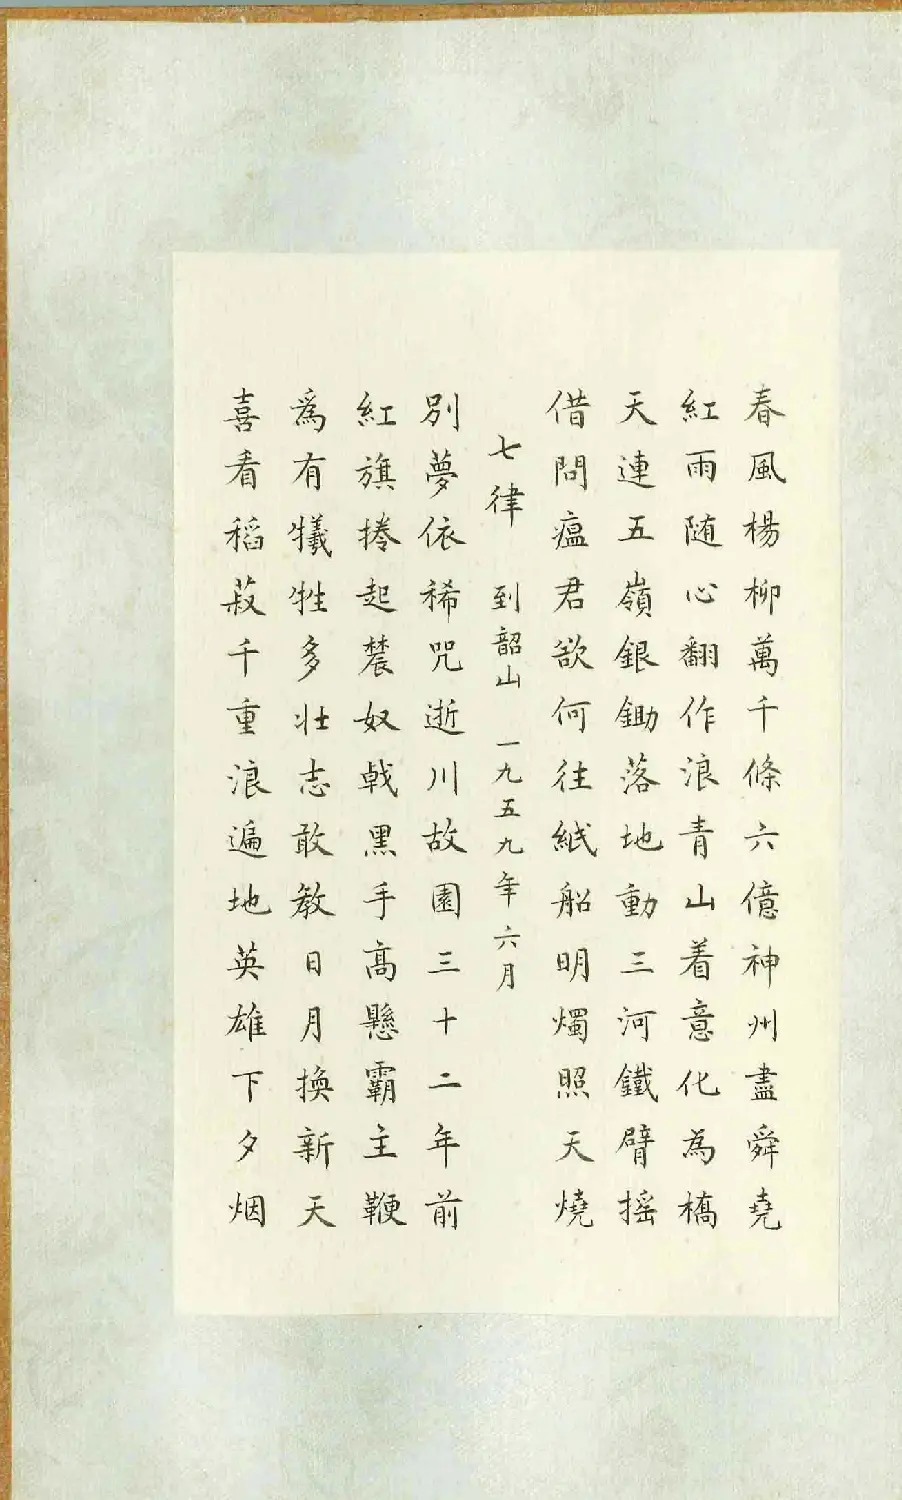 春風楊柳萬千條六億神州盡舜堯
紅雨随心翻作浪青山着意化為橋
天連五嶺銀鋤落地動三河鐵臂摇
借問瘟君欲何往紙船明燭照天燒
七律 到韶山 一九五九年六月
別夢依稀咒逝川故園三十二年前
紅旗捲起農奴戟黑手高懸霸主鞭
為有犧牲多壮志敢教日月換新天
喜看稻菽千重浪遍地英雄下夕烟